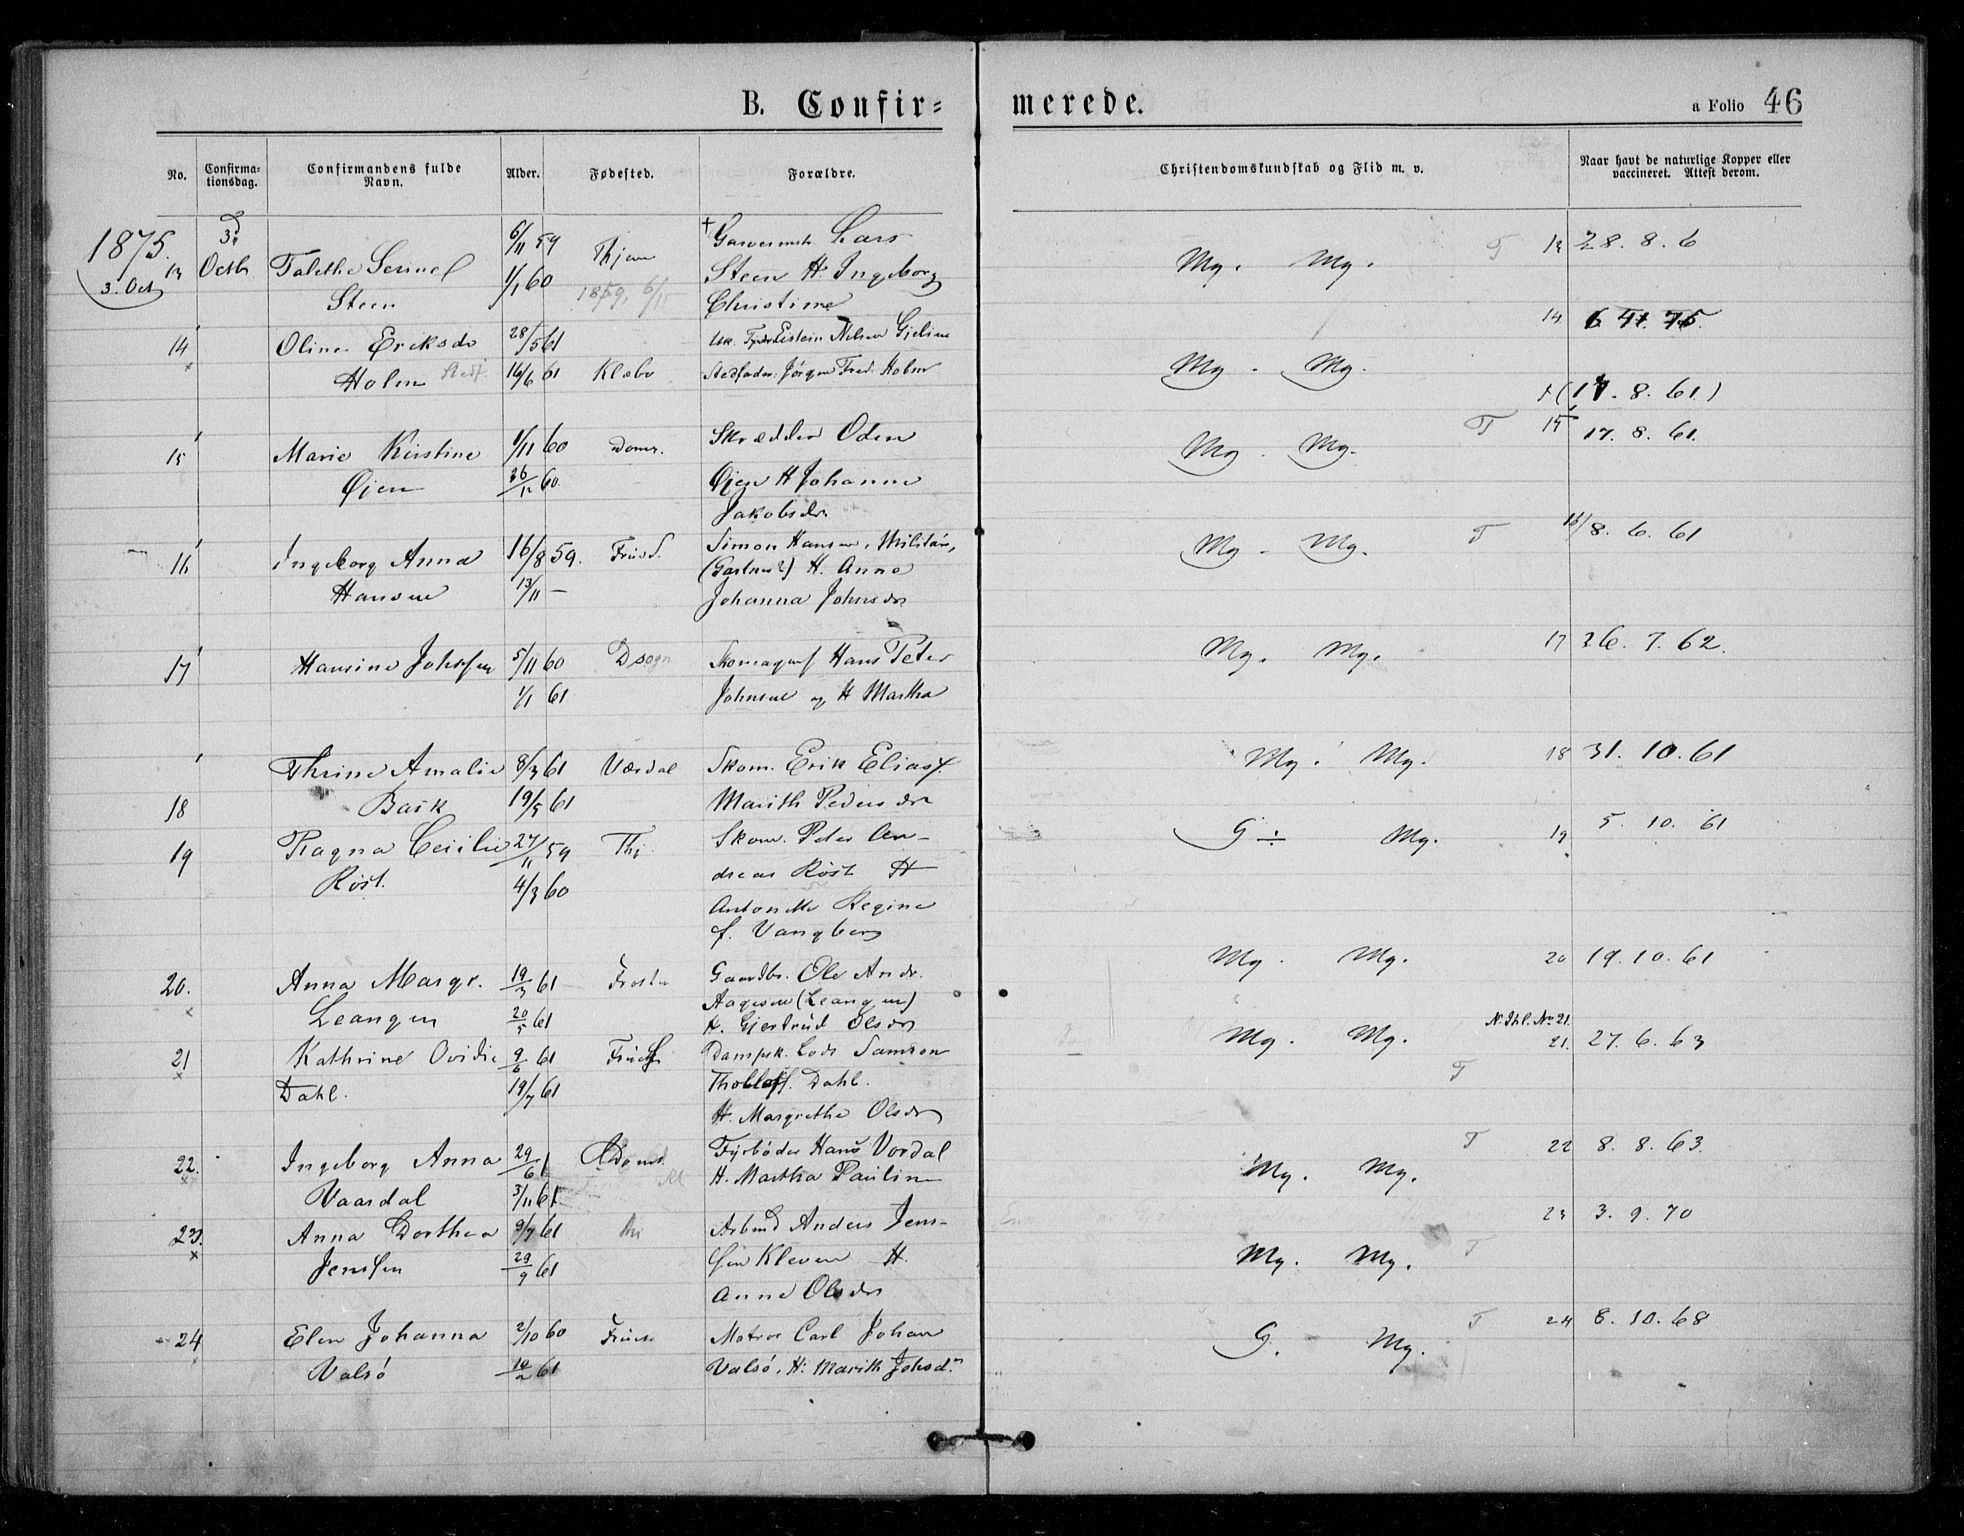 B. Confir-
merede.
a Folio 46
No.
Confirma-
tionsdag.
Confirmandens fulde
Navn.
Alder.
Fødested.
Forældre.
Christendomskundskab og Flid m. v.
Naar havt de naturlige Kopper eller
vaccineret. Attest derom.
1875.
3. Oct
13
3d
Octbr
Talethe
Steen
6/11 59
1/1 60
Thjem
1859, 6/11
† Garvermstr. Lars
Steen H. Ingeborg
Christine
Mg. Mg.
T
13 28. 8. 6
14
Oline Eriksdr
Holm Stedf.
28/5 61
16/6 61
Klæbo
Eistein Nilsen
Stedfader Jørgen Fred. Holm
Mg. Mg.
14
(17. 8. 61.)
15
Marie Kirstine
Øjen
1/11 60
26/12 60
Domk.
Skrædder Oden
Øjen H Johanne
Jakobsdr
Mg. Mg.
T
15 17. 8. 61.
16
Ingeborg Anna
Hansen
16/8 59.
13/11 —
Frues.
Simon Hansen, Militær,
(Gartner?) H. Anne
Johanna Johnsdr
Mg. Mg.
T
16/8. 6. 61
17
Hansine Johnsen
5/11 60
1/1 61
D sogn
Skomagerf Hans Peter
Johnsen og H Martha
Mg. Mg.
17 26. 7. 62.
18
Thrine Amalie
Bask
8/3 61
19/5 61
Værdal
Skom. Erik Eliasf.
Marith Pedersdr
Mg. Mg.
18 31. 10. 61
19
Ragna Cecilie
Röst.
27/11 59
4/3 60
Thj.
Skom. Peter An-
dreas Röst H
Antonette Regine
f. Vangberg
G ÷ Mg.
19 5. 10. 61
20.
Anna Margr.
Leangen
19/3 61
20/5 61
Frosta
Gaardbr. Ole Andr.
Aagesen (Leangen)
H. Gjertrud Olsdr
Mg. Mg.
20 19. 10. 61
21
Kathrine Ovidie
Dahl.
9/6 61
14/7 61
Frues
Dampsk. Lods Samson
Tholleff. Dahl.
H. Margrethe Olsdr
Mg. Mg.
N. Ihl. No 21.
T
21. 27. 6. 63
22.
Ingeborg Anna
Vaardal
29/6 61
3/11 61
Domk
Fyrbøder Hans Vordal
H. Martha Pauline
Mg. Mg.
T
22 8. 8. 63.
23.
Anna Dorthea
Jenssen
9/7 61
29/9 61
Arbmd Anders Jens-
sen Kleven H.
Anne Olsdr
Mg. Mg.
T
23 3. 9. 70
24
Elen Johanna
Valsö
2/10 60
10/2 61
Frues
Matros Carl Johan
Valsö, H. Marith Johsdr
G. Mg.
T
24 8. 10. 68